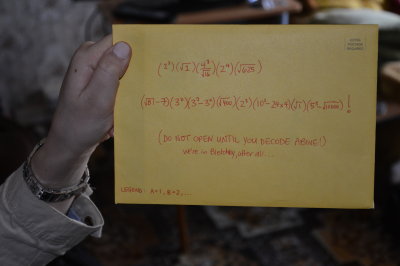 EXTRA
POSTAGE
REQUIRED
(2³)(√1)(4³/√16)(2⁴)(√625)
(√81-7)(3²)(3³-3²)(√400)(2³)(10²-24x4)(√1) !
(DO NOT OPEN UNTIL YOU DECODE ABOVE!)
we're in Bletchley, after all...
LEGEND: A=1, B=2,...